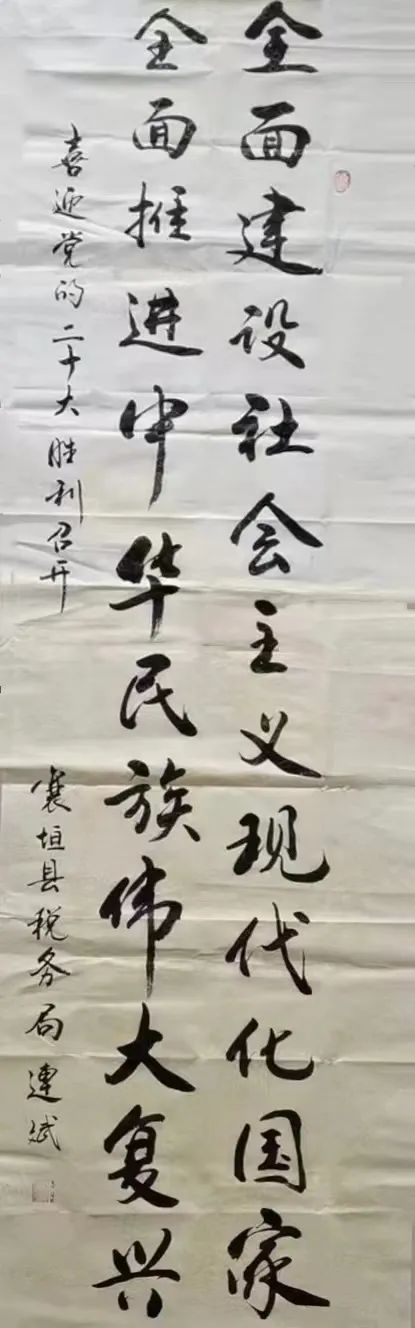 全面建设社会主义现代化国家
全面推进中华民族伟大复兴
喜迎党的二十大胜利召开
襄垣县税务局连斌